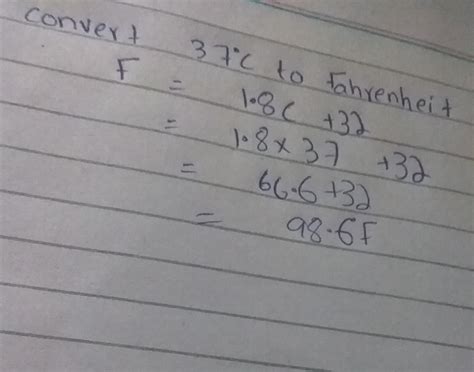 convert 37°C to fahrenheit
F = 1.8C +32
= 1.8 x 37 +32
= 66.6+32
= 98.6F